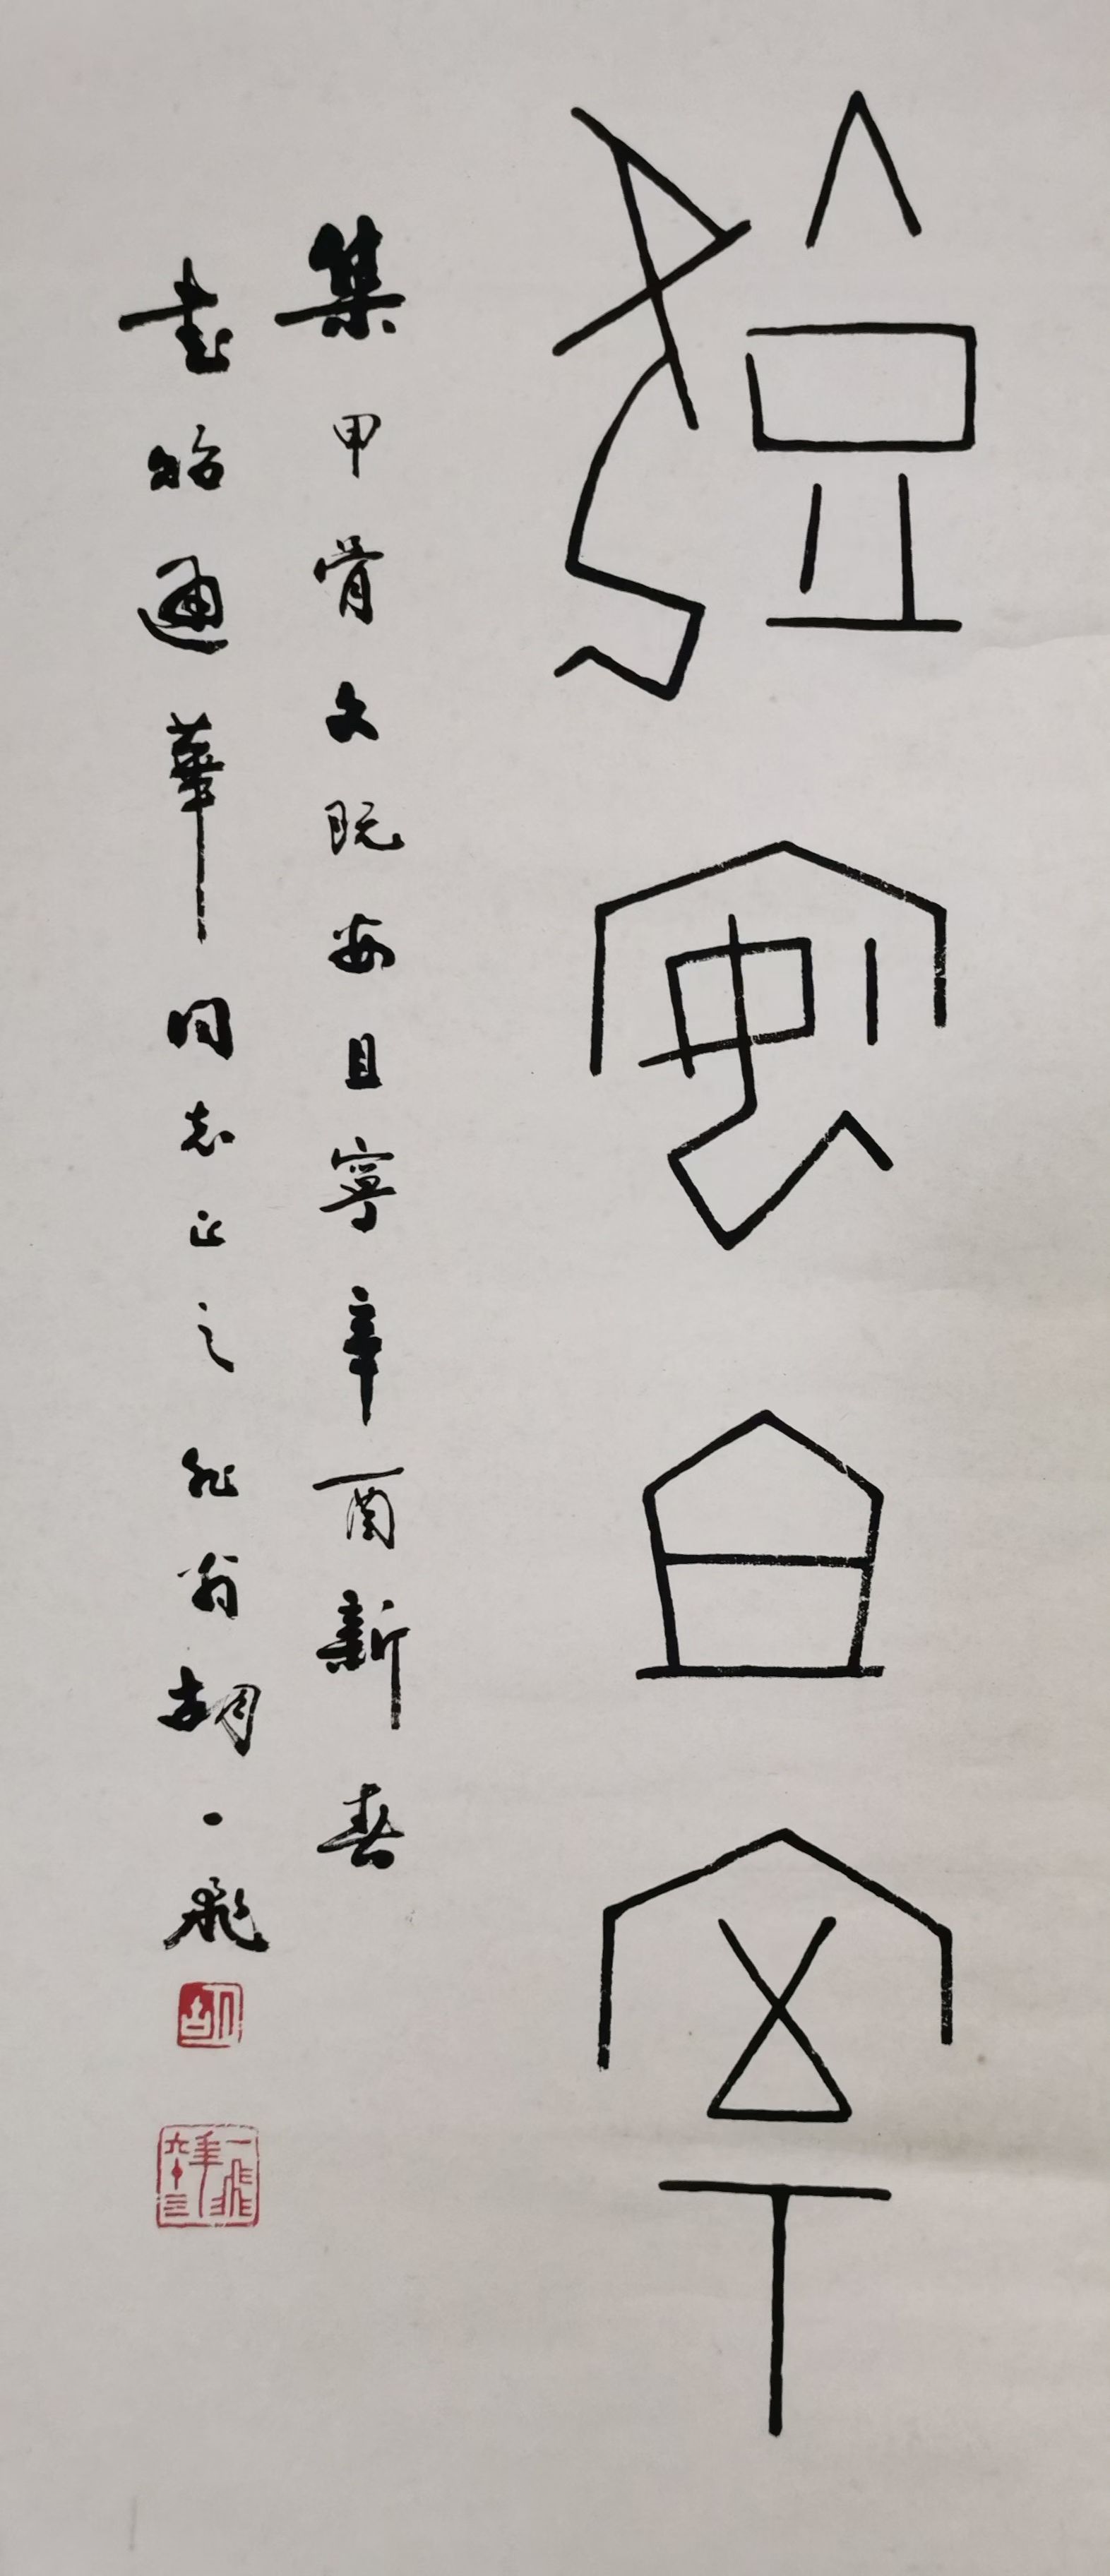 既安且寧
集甲骨文既安且寧辛酉新春
書貽通華同志正之 翁胡一飛
胡
一飛年六十三